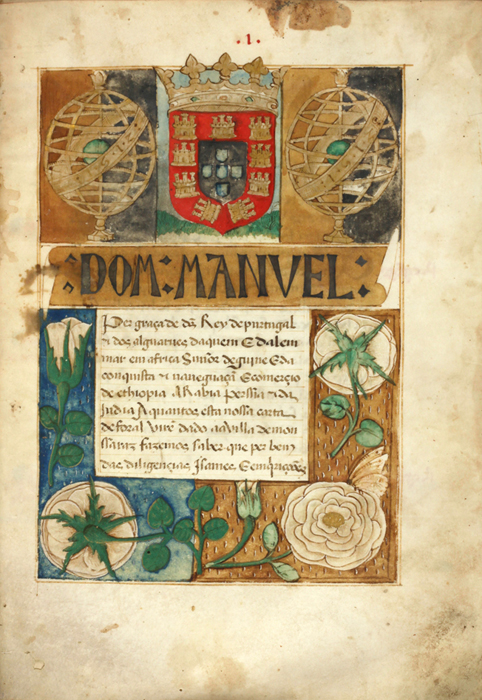 .1.
DOM: MANVEL:
Per graça de dſ̃ Rey de purtugal
& dos alguarues daquem E dalem
mar em africa Sñor de guine E da
conquista & naueguaçã E comerçio
de ethiopia Arabia perssia & da
India A quantos esta nossa carta
de foral virẽ dado aa villa de mon
ssaraz fazemos saber que per bem
das diligençias Isames E